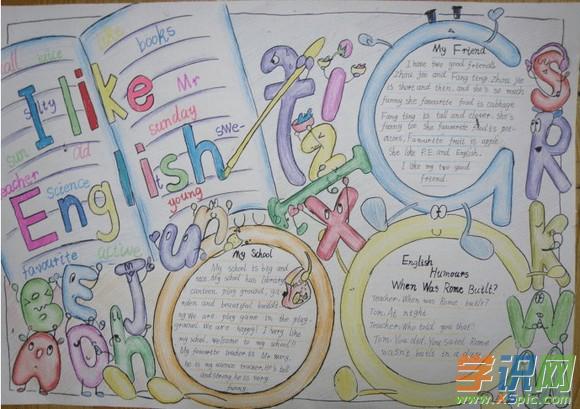 call nice like books
salty Mr
sunday
sun ad swe-
teacher Science it
young
favourite active
I like
English
My Friend
I have two good friends
Zhou Jie and Fang ting. Zhou Jie
is short and thin. and she's so much
funny. she favourite food is cabbage
Fang ting is tall and clever. She's
funny too. She favourite food is pot-
atoes, Favourite fruit is apple.
She like P.E and English.
I like my two good
friend.
My School
My school is big and
nice. My school has library,
canteen, play ground, gar
den and beautiful buildi
ng. We are play game in the play-
ground. We are happy. I very like
my school. Welcome to my school!!
My favourite teacher is Mr Wang.
he is my science teacher. He's tall
and strong. he is very
funny.
English
Humours
When Was Rome Built?
Teacher: When was Rome built?
Tom: At night.
Teacher: Who told you that?
Tom: You did. You said Rome
wasn't built in a day.
S
R
K
W
X
B E J
A O h
学识网
www.XSpic.com